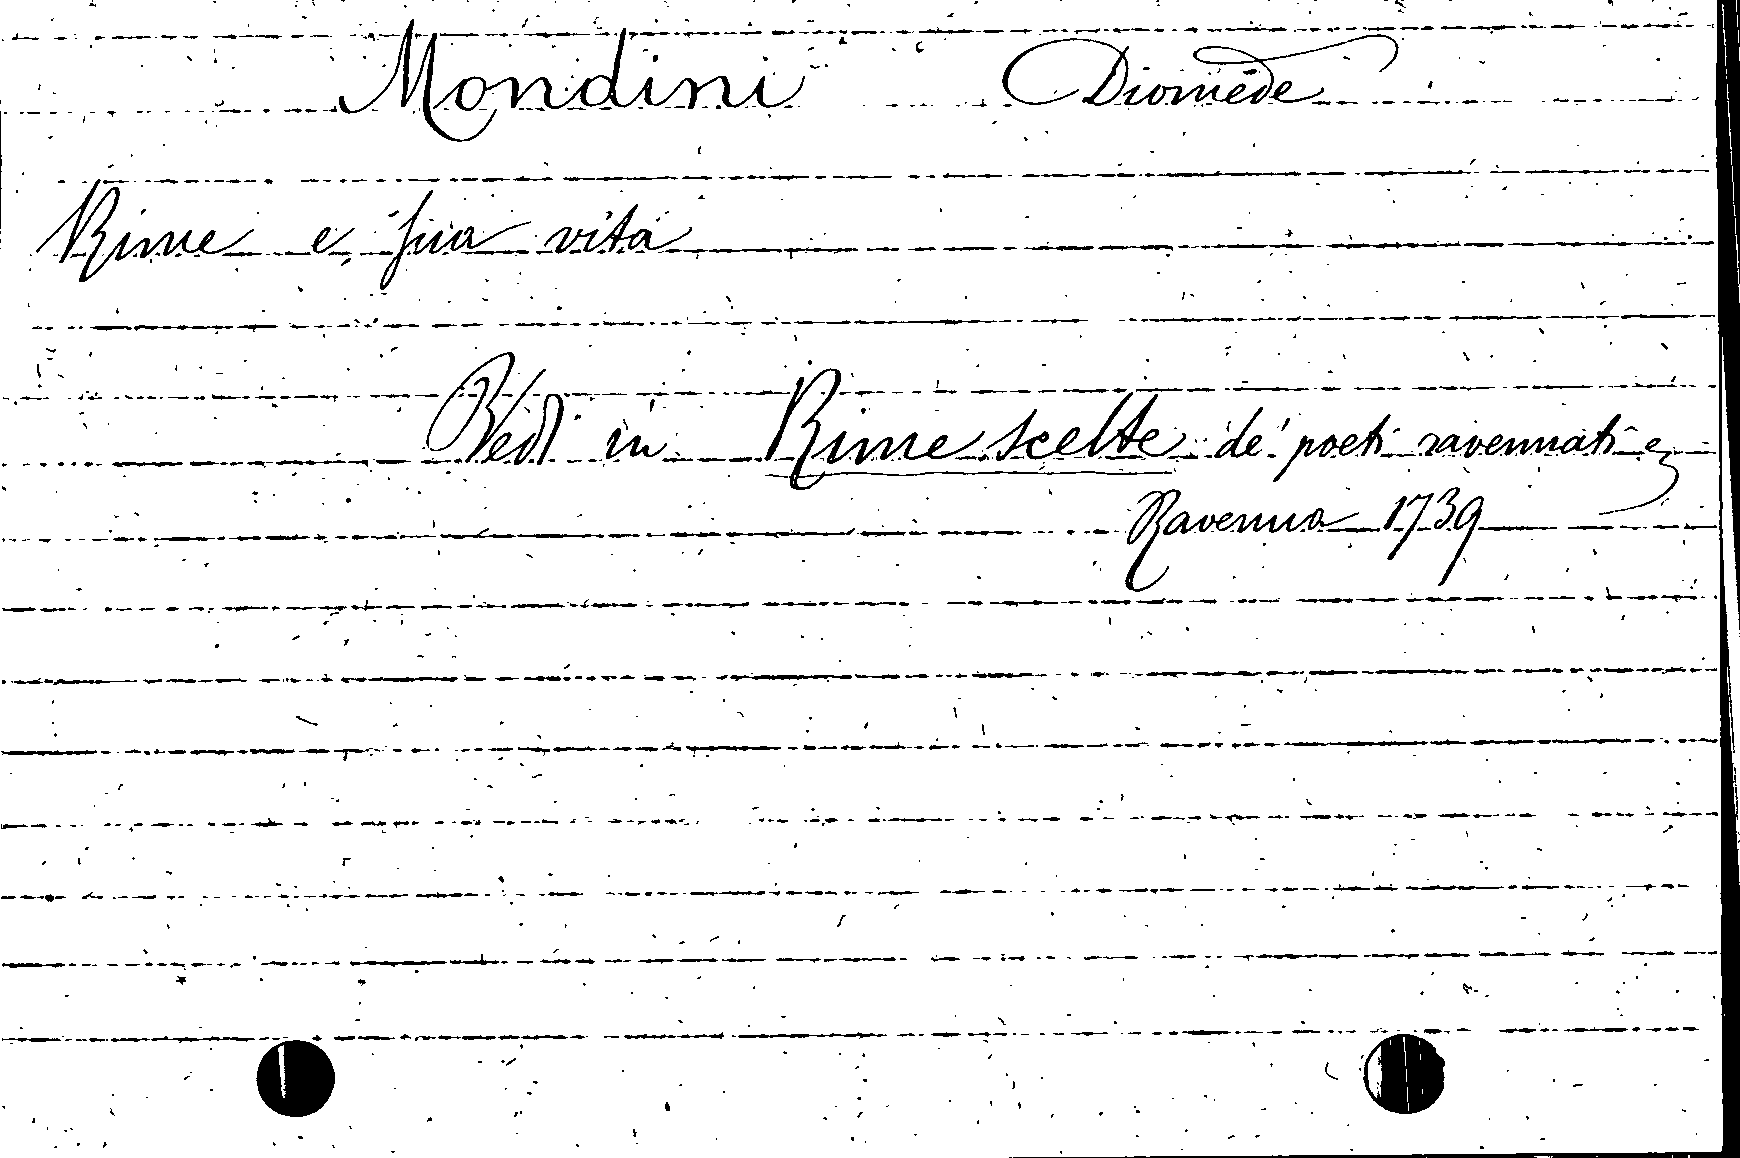 Mondini Diomede
Rime e sua vita
Vedi in Rime scelte de' poeti ravennati e
Ravenna 1739